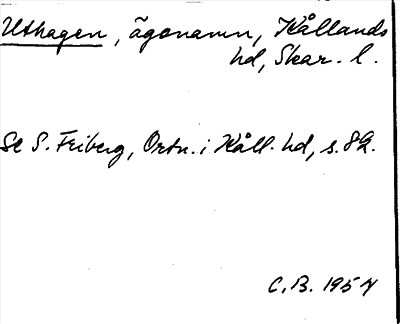 Uthagen, ägonamn, Kållands
hd, Skar. l.
Se S. Friberg, Ortn. i Kåll. hd, s. 82.
C. B. 1957